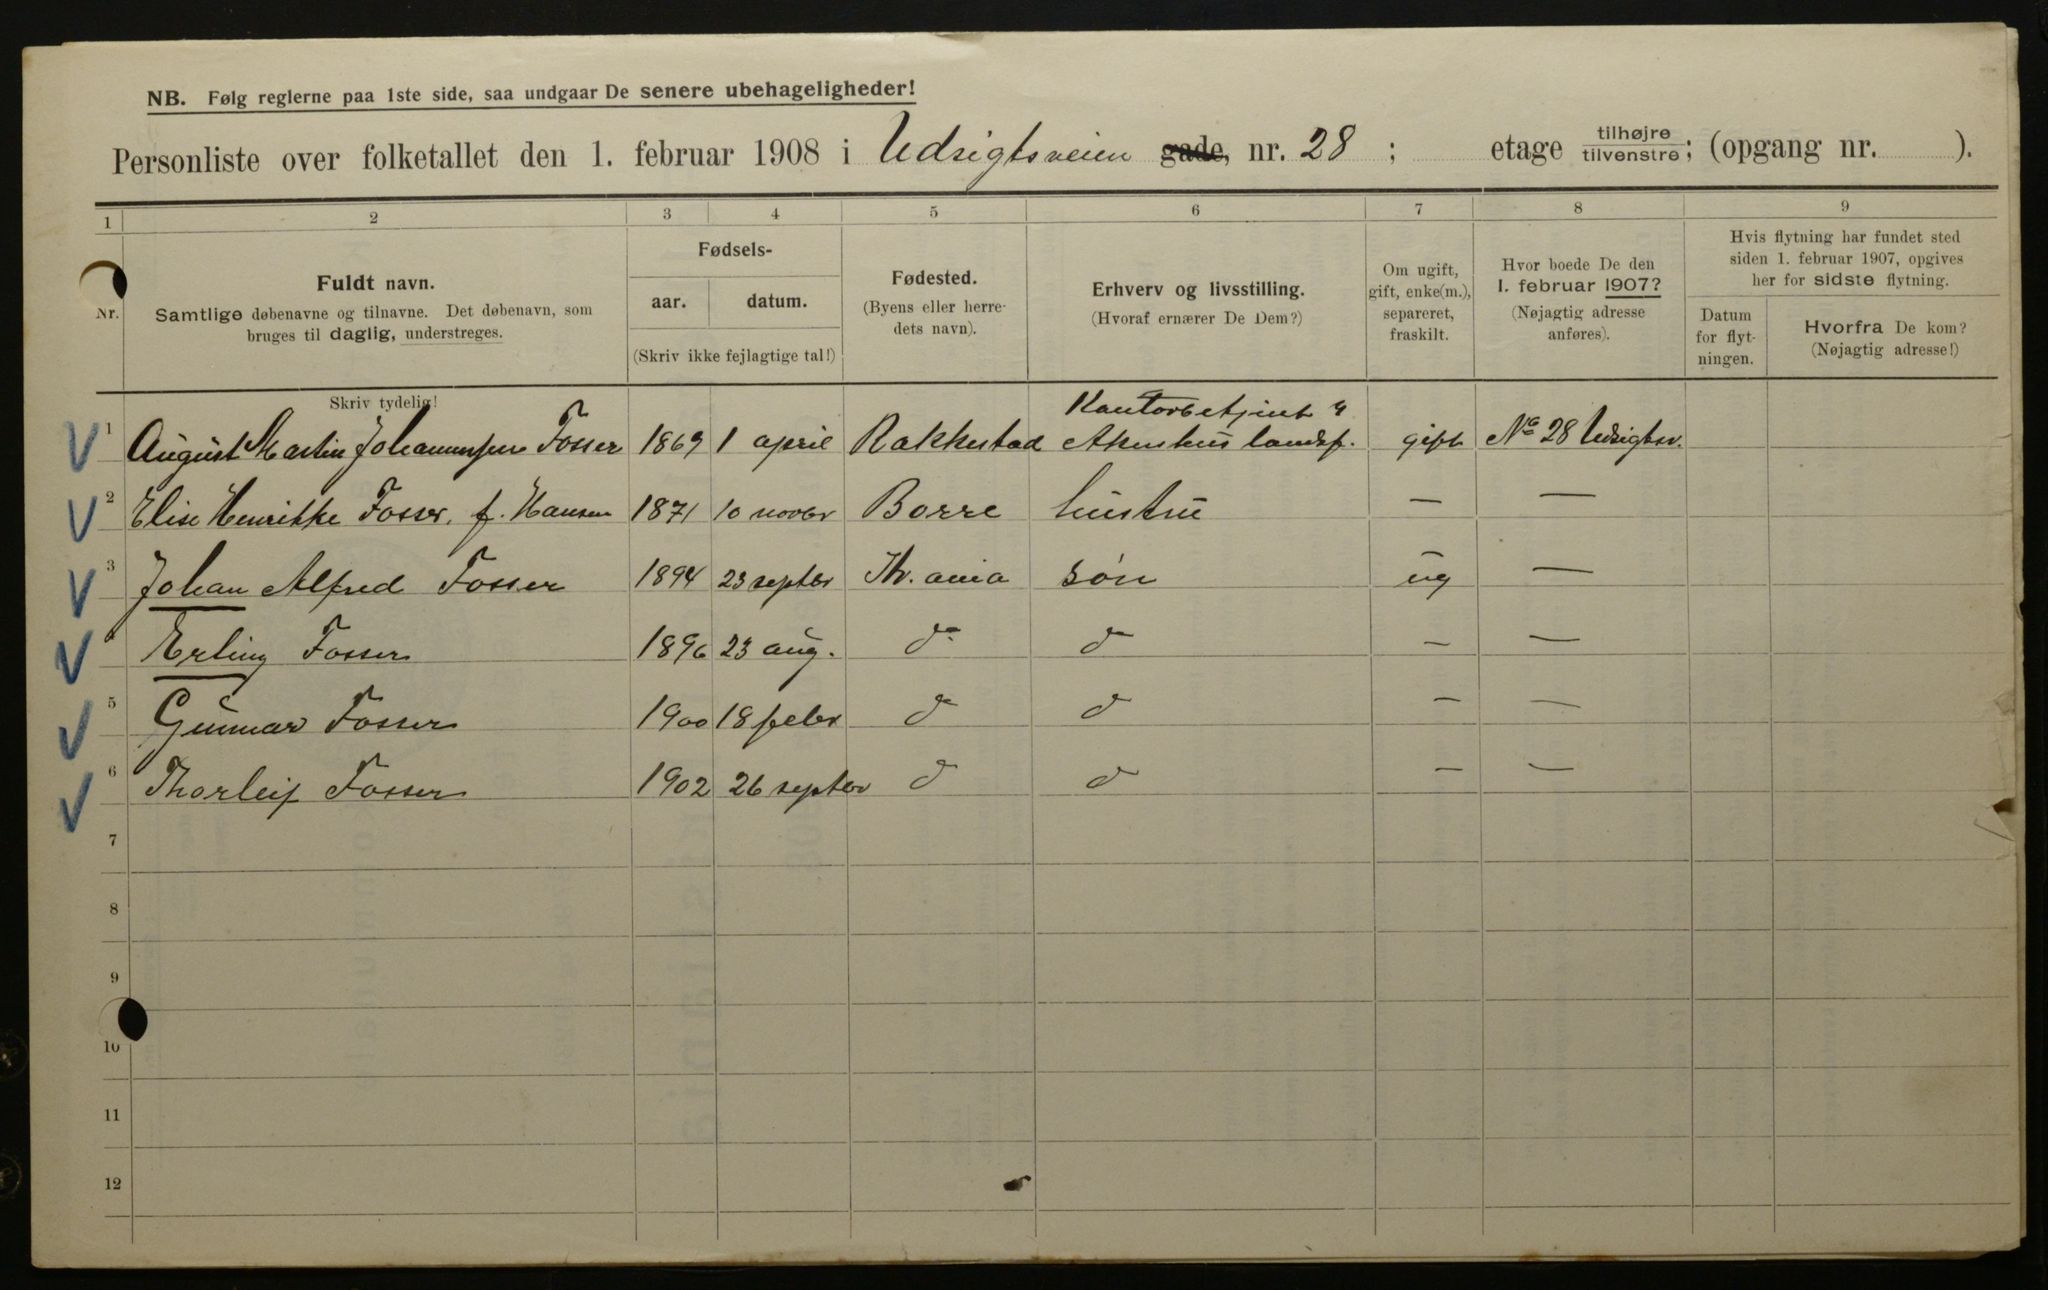 NB. Følg reglerne paa 1ste side, saa undgaar De senere ubehageligheder!
Personliste over folketallet den 1. februar 1908 i Udsigtsveien gade, nr. 28 ; etage tilhøjre/tilvenstre; (opgang nr. ).
1 2 3 4 5 6 7 8 9
Nr.
Fuldt navn.
Samtlige døbenavne og tilnavne. Det døbenavn, som
bruges til daglig, understreges.
Skriv tydelig!
Fødsels-
aar. datum.
(Skriv ikke fejlagtige tal!)
Fødested.
(Byens eller herre-
dets navn).
Erhverv og livsstilling.
(Hvoraf ernærer De Dem?)
Om ugift,
gift, enke(m.),
separeret,
fraskilt.
Hvor boede De den
1. februar 1907?
(Nøjagtig adresse
anføres).
Hvis flytning har fundet sted
siden 1. februar 1907, opgives
her for sidste flytning.
Datum
for flyt-
ningen.
Hvorfra De kom?
(Nøjagtig adresse!)
Kontorbetjent v
1 August Martin Johannesen Fosser 1869 1 april Rakkestad Akershus landsf. gift No 28 Udsigtsv.
2 Elise Henrikke Fosser, f. Hansen 1871 10 novbr Borre hustru — —
3 Johan Alfred Fosser 1894 23 septbr Kr.ania søn ug —
4 Erling Fosser 1896 23 aug. do do — —
5 Gunnar Fosser 1900 18 febr do do — —
6 Thorleif Fosser 1902 26 septbr do do — —
7
8
9
10
11
12